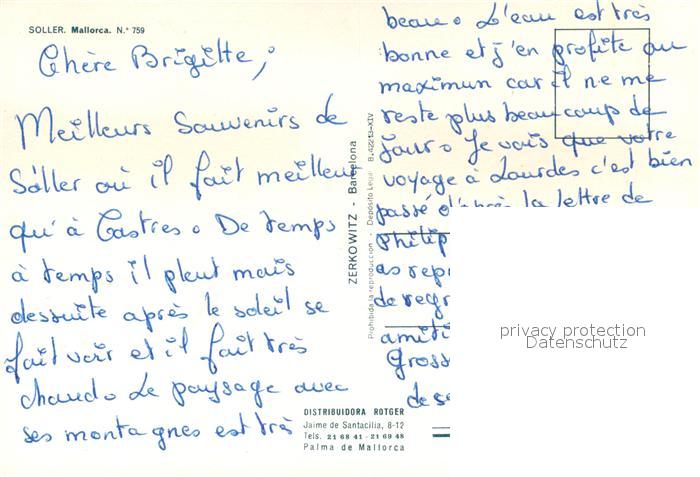 SOLLER. Mallorca. N.° 759
Chère Brigitte,
Meilleurs Souvenirs de
Sóller où il fait meilleur
qu'à Castres. De temps
à temps il pleut mais
dessuite après le soleil se
fait voir et il fait très
chaud. Le paysage avec
ses montagnes est très
beau. L'eau est très
bonne et j'en profite au
maximun car il ne me
reste plus beaucoup de
jours. Je vois que votre
voyage à Lourdes c'est bien
passé d'après la lettre de
Philip
as repr
de regr
amiti
Gross
de se
ZERKOWITZ - Barcelona
Prohibida la reproducción - Depósito Legal B. 42213-XIV
DISTRIBUIDORA ROTGER
Jaime de Santacilia, 8-12
Tels. 21 68 41 - 21 69 48
Palma de Mallorca
privacy protection
Datenschutz